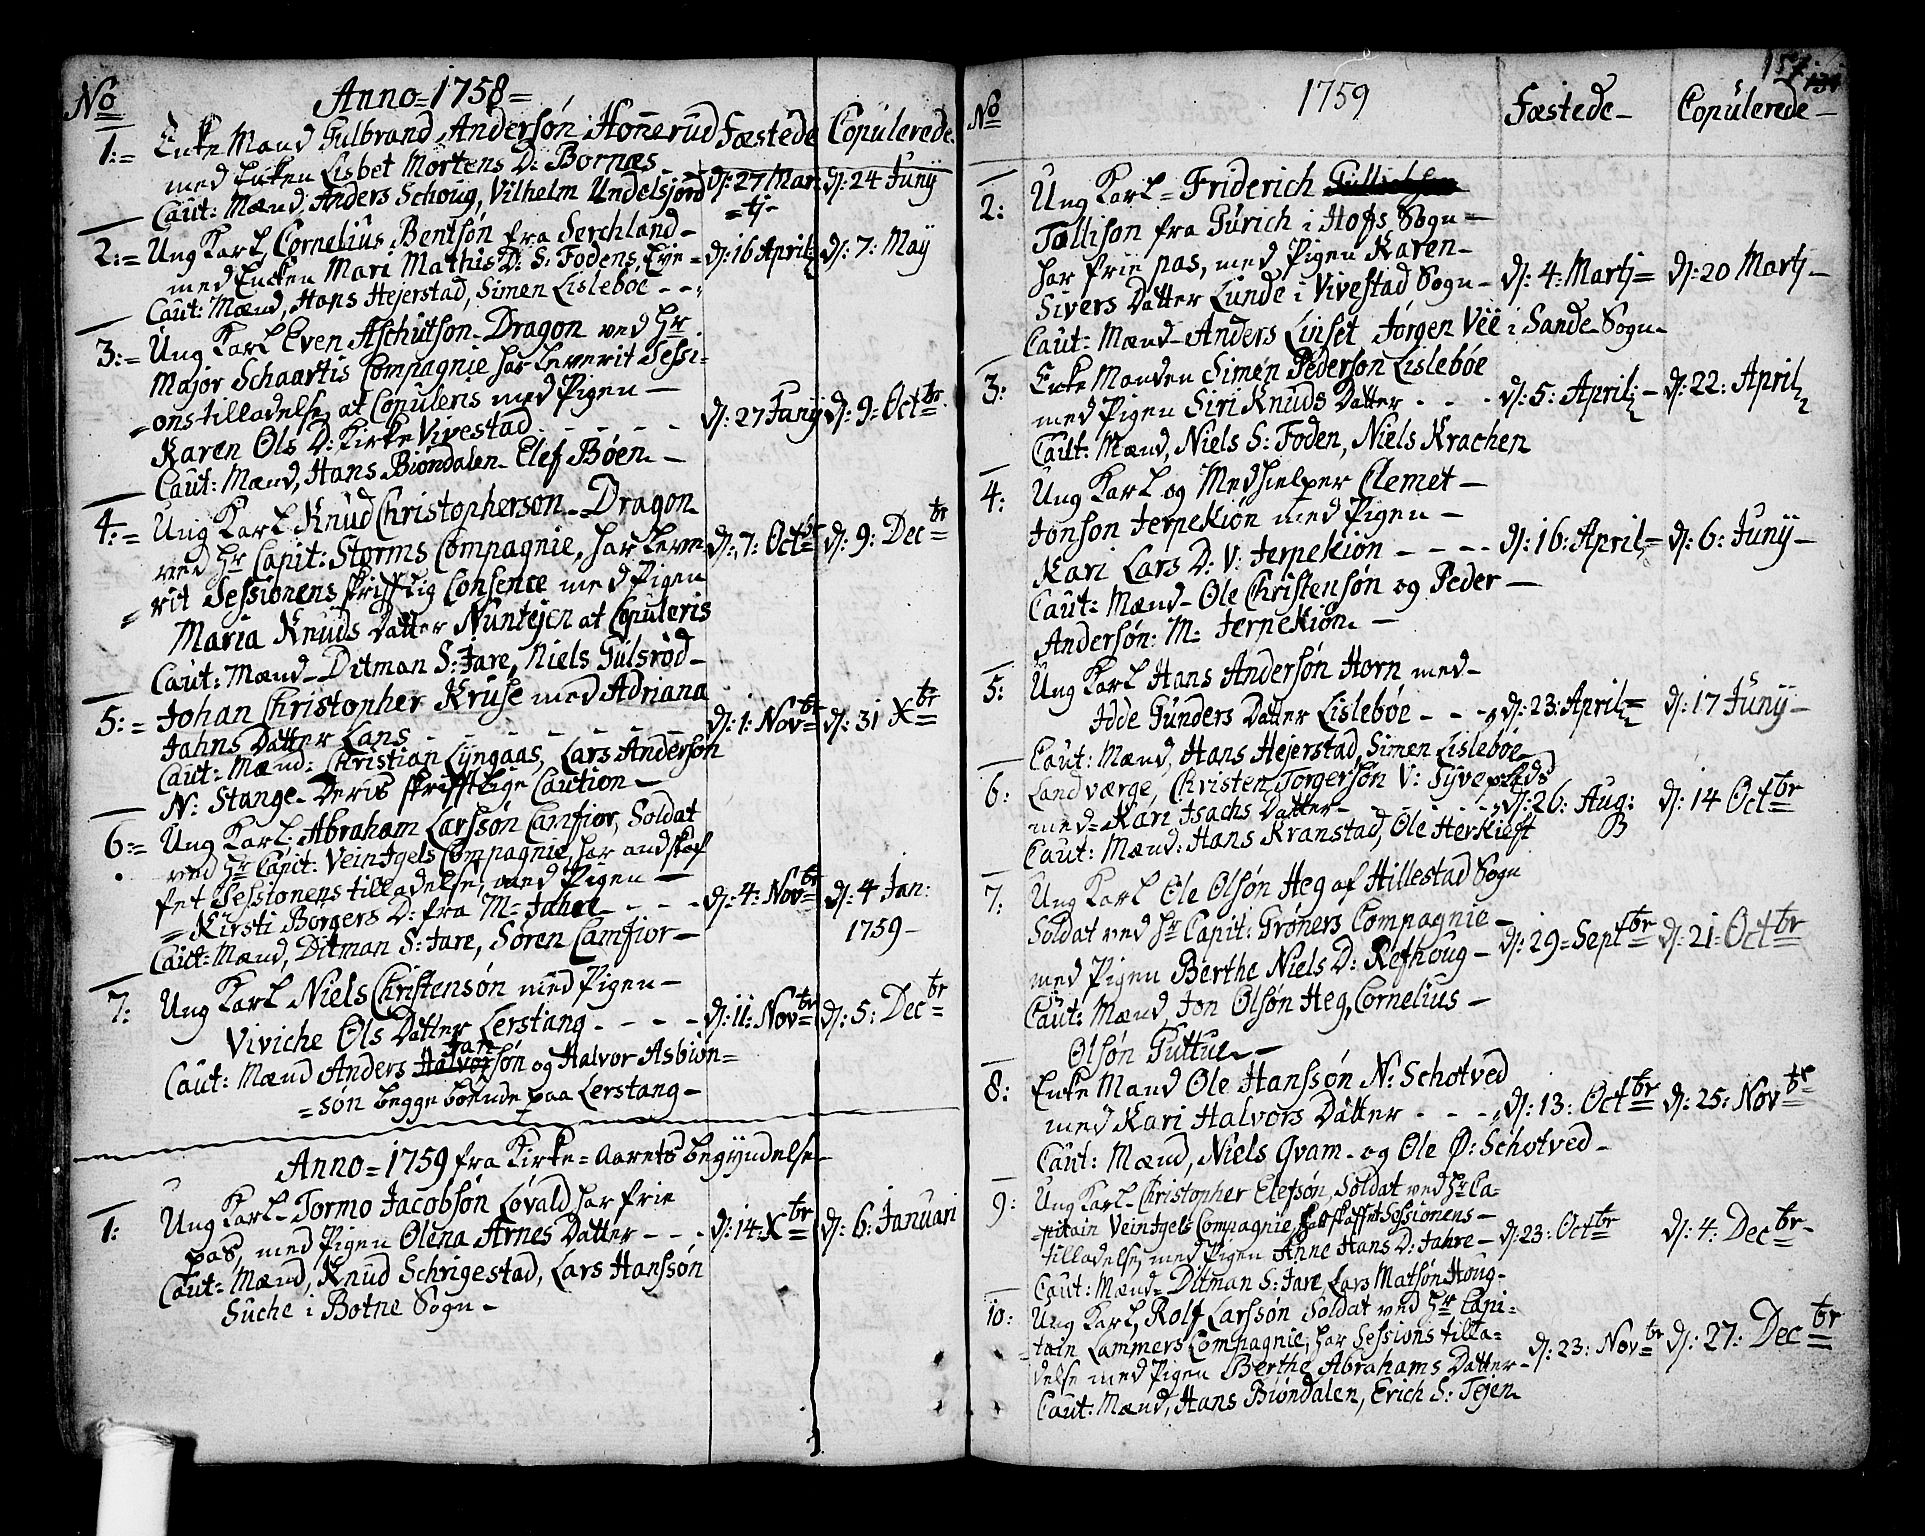 No Anno=1758=
Fæstede Copulerede.
1:= Enke Mand Gulbrand Andersøn Honnerud
med Enken Lisbet Mortens D: Bornæs
d: 27 Mar= d: 24 Junÿ
=tj-
Caut: Mænd, Anders Schoug, Vilhelm Undelsjord
2:= Ung Karl, Cornelius Bentsøn fra Serchland-
med Encken Mari Mathis D: S: Fodens, Eve= d: 16 April d: 7: Maÿ
Caut: Mænd, Hans Hejerstad, Simen Lisleboe - -
3:= Ung Karl Even Aschutson-Dragon ved Hr
Major Schaartis Compagnie har leverit Sessi=
=ons tilladelse, at Copuleris med Pigen-
Karen Ols D: Kirke Vivestad - - - - d: 27 Junÿ d: 9: Octbr.
Caut: Mænd, Hans Biøndalen- Elef Bøen-
4:= Ung Karl- Knud Christopherson-Dragon
ved Hr Capit: Storms Compagnie, har leve= d: 7: Octbr d: 9: Decbr
=rit Sessionens skrifftlig Consence med Pigen
Maria Knuds Datter Nuntejen at Copuleris
Caut: Mænd- Ditman S: Jare, Niels Gulsrød-
5:= Johan Christopher Kruse med Adriana
Jahns Datter Lans - - - - - d: 1: Novbr d: 31 Xbr
Caut: Mænd: Christian Lyngaas, Lars Anderson
N: Stange- Deris skrifftlige Caution-
6:= Ung Karl- Abraham Larssøn Camfior, Soldat
ved Hr Capit: Veintgels Compagnie, har andskaf
fet Sessionens tilladelse, med Pigen-
=Kirsti Borgers D: fra M: Jahre - - - d: 4: Novbr d: 4 Jan:
1759-
Caut: Mænd, Ditman S: Jare, Søren Camfior-
7: Ung Karl Niels Christensøn med Pigen-
Viviche Ols Datter Lerstang - - - - d: 11: Novbr d: 5: Decbr
Jan
Caut: Mænd Anders Halvorsøn og Halvor Asbiøn=
=søn begge boende paa Lerstang-
Anno=1759 fra Kirke=Aarets begÿndelse-
1: Ung Karl- Tormo Jacobsøn Løvald har frie
pas, med Pigen Olena Arnes Datter - - - d: 14: Xbr d: 6: Januari
Caut: Mænd, Knud Schrigestad, Lars Hanssøn
Suche i Botne Sogn-
157.
134
No 1759 Fæstede- Copulerede-
2: Ung Karl= Friderich
Tollison fra Gurich i Hofs Sogn-
har frie pas, med Pigen Karen-
Sivers Datter Lunde i Vivestad Sogn- d: 4: Martj= d: 20 Martj-
Caut: Mænd- Anders Linset Jørgen Vee i Sande-Sogn-
3: Enke Manden Simen Pederson Lislebøe
med Pigen Siri Knuds Datter - - - d: 5: April- d: 22: April
Caut: Mænd, Niels S: Foden, Niels Krachen
4: Ung Karl og Medhielper Clemet-
Jonson Jerpekiøn med Pigen-
Kari Lars D: V: Jerpekiøn - - - - d: 16: April- d: 6: Junÿ-
Caut: Mænd- Ole Christensøn og Peder-
Andersøn: M: Jerpekiøn-
5: Ung Karl Hans Andersøn Horn med-
Idde Gunders Datter Lislebøe - - - d: 23: April= d: 17 Junÿ-
Caut: Mænd, Hans Hejerstad, Simen Lislebøe
6: Land værge, Christen Torgersøn V: Syvepleds
med= Kari Isachs Datter- - - - d: 26: Aug: d: 14 Octbr
Caut: Mænd: Hans Kranstad, Ole Herkieft
7: Ung Karl Ole Olsøn Heg af Hillestad Sogn
Soldat ved Hr Capit: Grøners Compagnie-
med Pigen Berthe Niels D: Refhoug- d: 29=Septbr d: 21: Octbr
Caut: Mænd, Jon Olsøn Heg, Cornelius-
Olsøn Guttue-
8: Enke Mand Ole Hanssøn N: Schotved
med Kari Halvors Datter - - - d: 13: Octbr d: 25: Novbr
Caut: Mænd, Niels Qvam- og Ole Ø: Schotved-
9: Ung Karl- Christopher Elefsøn, Soldat ved Hr Ca=
=pitain Veintgels Compagnie, skaffet Sessionens-
tilladelse, med Pigen Anne Hans D: Jahre- d: 23: Octbr d: 4: Decbr-
Caut: Mænd= Ditman S: Jare Lars Matsøn Houg-
10: Ung Karl, Rolf Larssøn Soldat ved Hr Capi=
=tain Lammers Compagnie, har Sessions tilla=
delse med Pigen Berthe Abrahams Datter- d: 23: Novbr d: 27: Decbr
Caut: Mænd, Hans Biøndalen, Erich S: Tejen